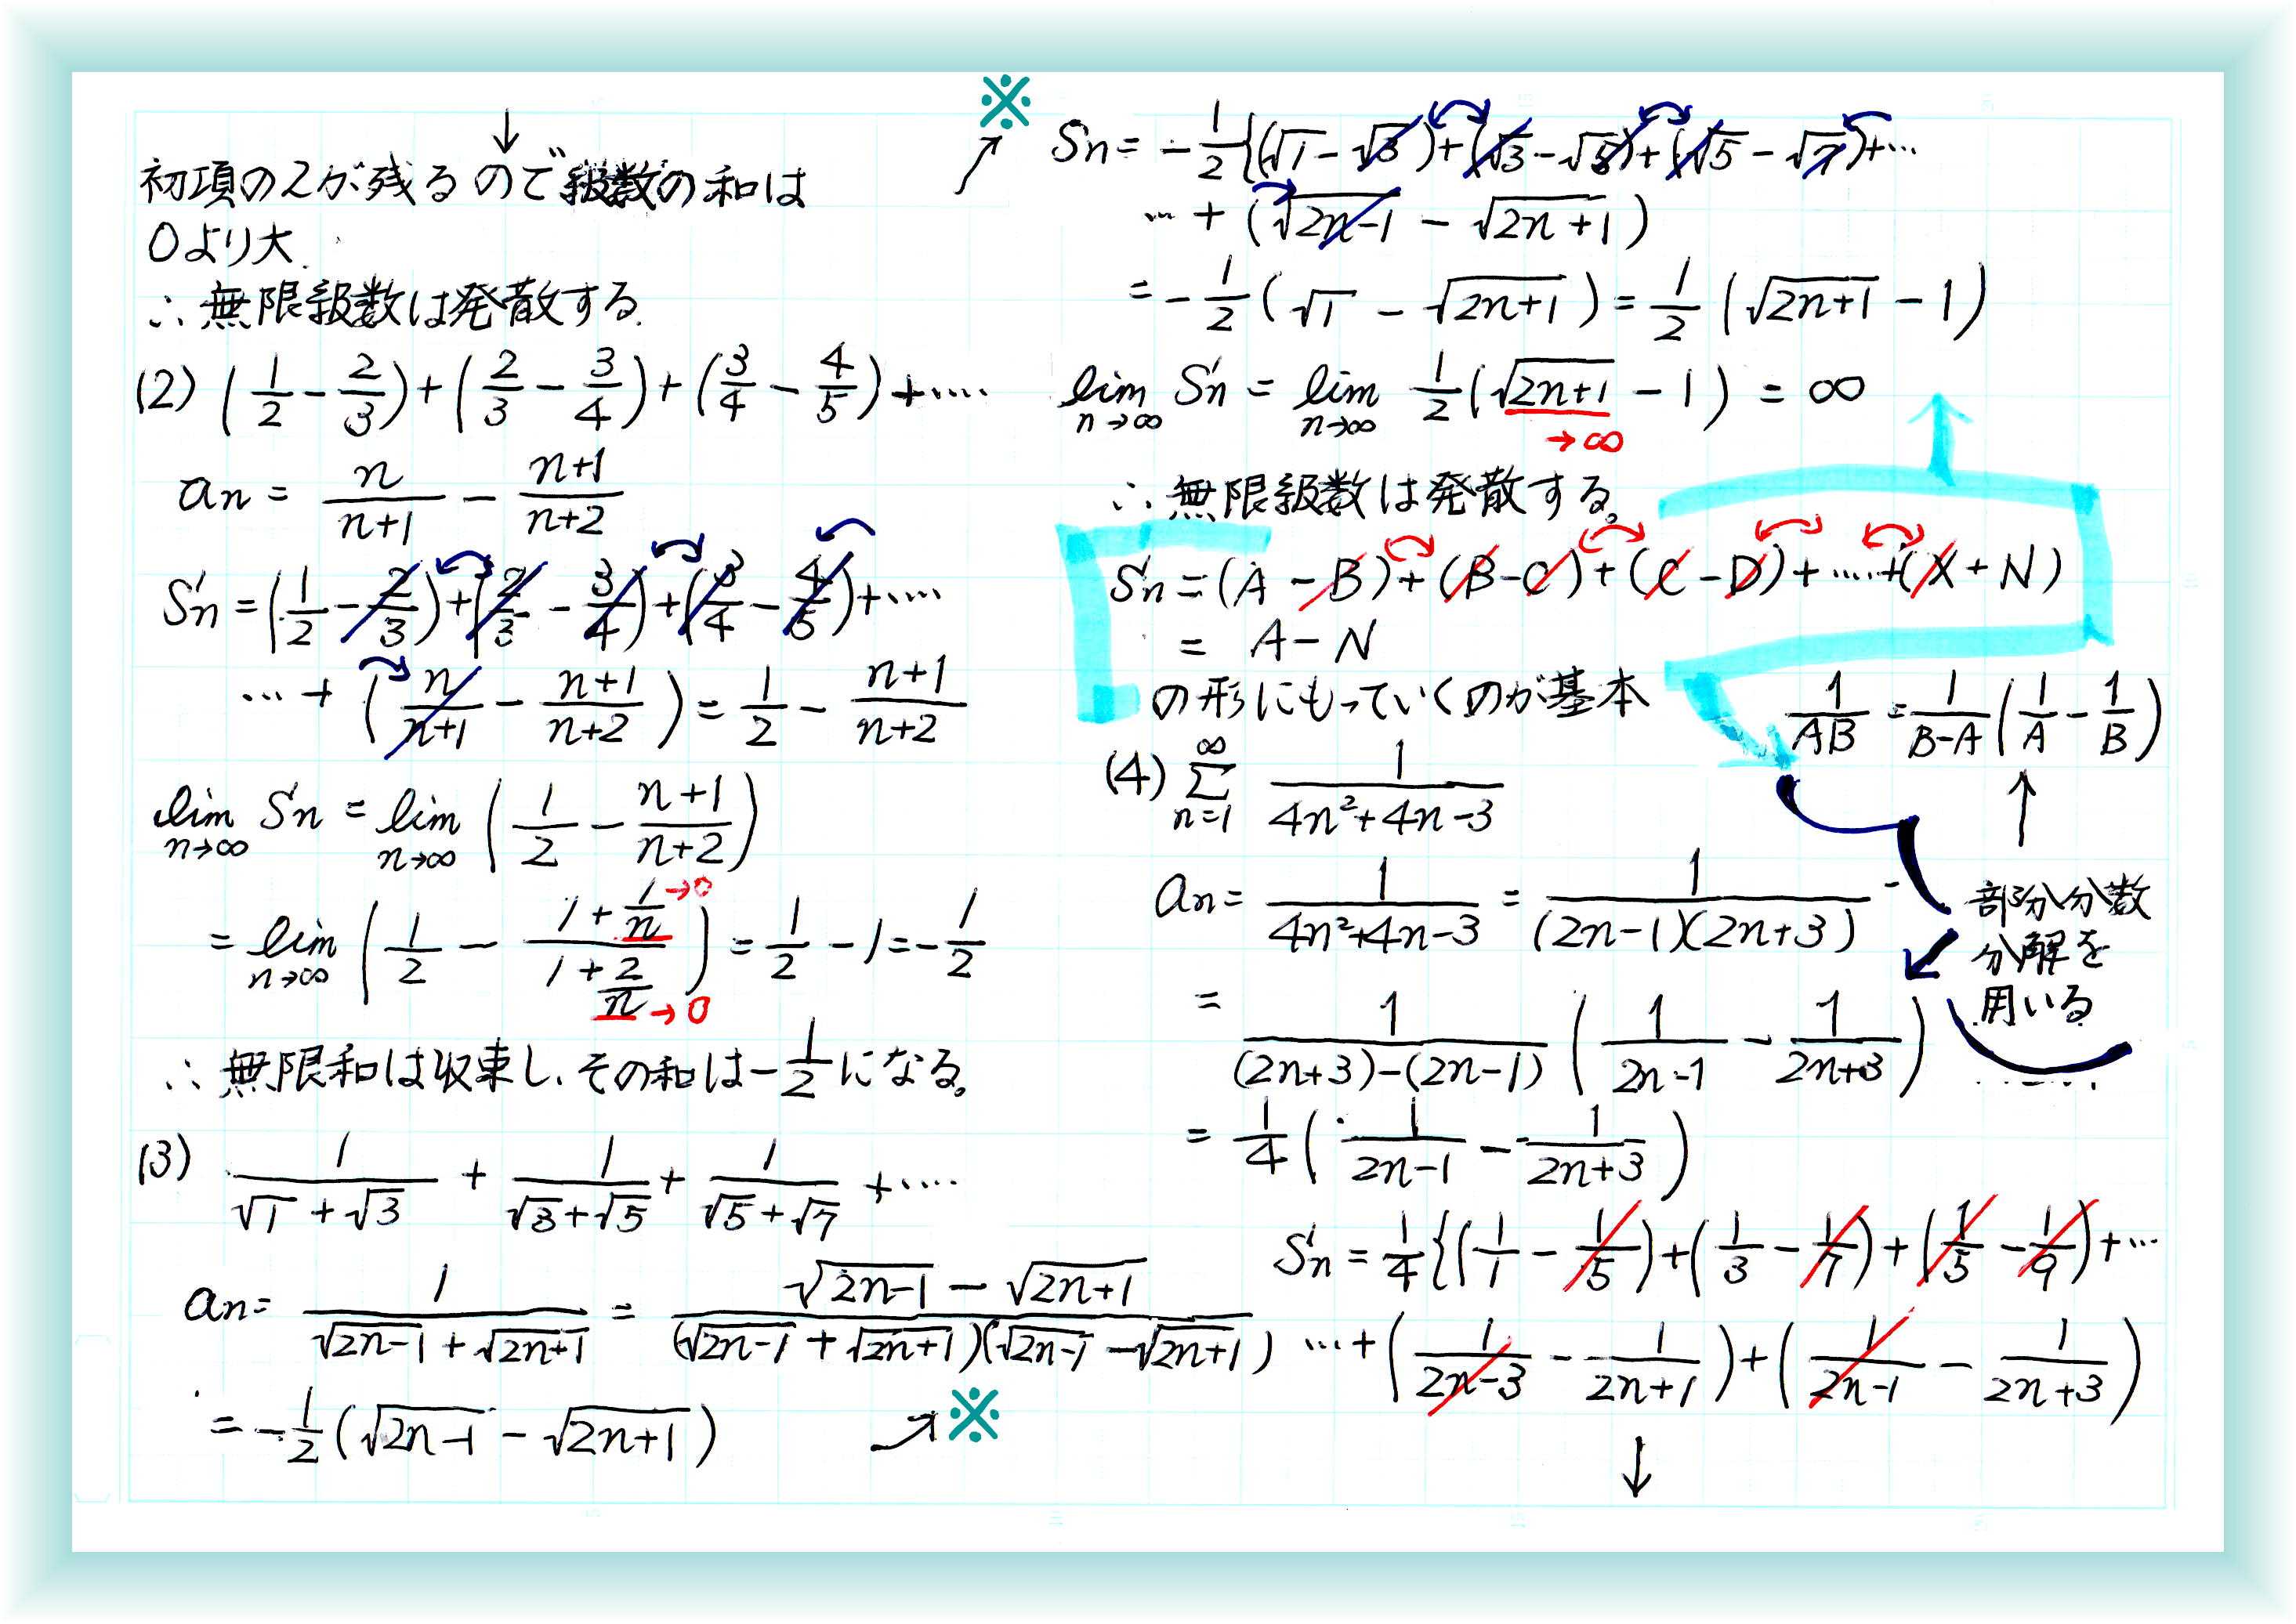 ↓
初項の2が残るので級数の和は
0より大.
∴ 無限級数は発散する.
(2) (1/2 - 2/3) + (2/3 - 3/4) + (3/4 - 4/5) + ‥‥
an = n/(n+1) - (n+1)/(n+2)
Sn = (1/2 - 2/3) + (2/3 - 3/4) + (3/4 - 4/5) + ‥‥
… + (n/(n+1) - (n+1)/(n+2)) = 1/2 - (n+1)/(n+2)
lim n→∞ Sn = lim n→∞ (1/2 - (n+1)/(n+2))
= lim n→∞ (1/2 - (1 + 1/n →0)/(1 + 2/n →0)) = 1/2 - 1 = -1/2
∴ 無限和は収束し、その和は -1/2 になる。
(3) 1/(√1 + √3) + 1/(√3 + √5) + 1/(√5 + √7) + ‥‥
an = 1/(√(2n-1) + √(2n+1)) = (√(2n-1) - √(2n+1))/((√(2n-1) + √(2n+1))(√(2n-1) - √(2n+1)))
= -1/2 (√(2n-1) - √(2n+1)) ※
※
Sn = -1/2 {(√1 - √3) + (√3 - √5) + (√5 - √7) + …
… + (√(2n-1) - √(2n+1))
= -1/2 (√1 - √(2n+1)) = 1/2 (√(2n+1) - 1)
lim n→∞ Sn = lim n→∞ 1/2 (√(2n+1) - 1) = ∞
→∞
∴ 無限級数は発散する。
Sn = (A - B) + (B - C) + (C - D) + ‥‥ + (X + N)
= A - N
の形にもっていくのが基本
1/AB = 1/(B-A) (1/A - 1/B)
↑
部分分数
分解を
用いる
(4) ∞ Σ n=1 1/(4n²+4n-3)
an = 1/(4n²+4n-3) = 1/((2n-1)(2n+3))
= 1/((2n+3)-(2n-1)) (1/(2n-1) - 1/(2n+3))
= 1/4 (1/(2n-1) - 1/(2n+3))
Sn = 1/4 {(1/1 - 1/5) + (1/3 - 1/7) + (1/5 - 1/9) + …
… + (1/(2n-3) - 1/(2n+1)) + (1/(2n-1) - 1/(2n+3))
↓